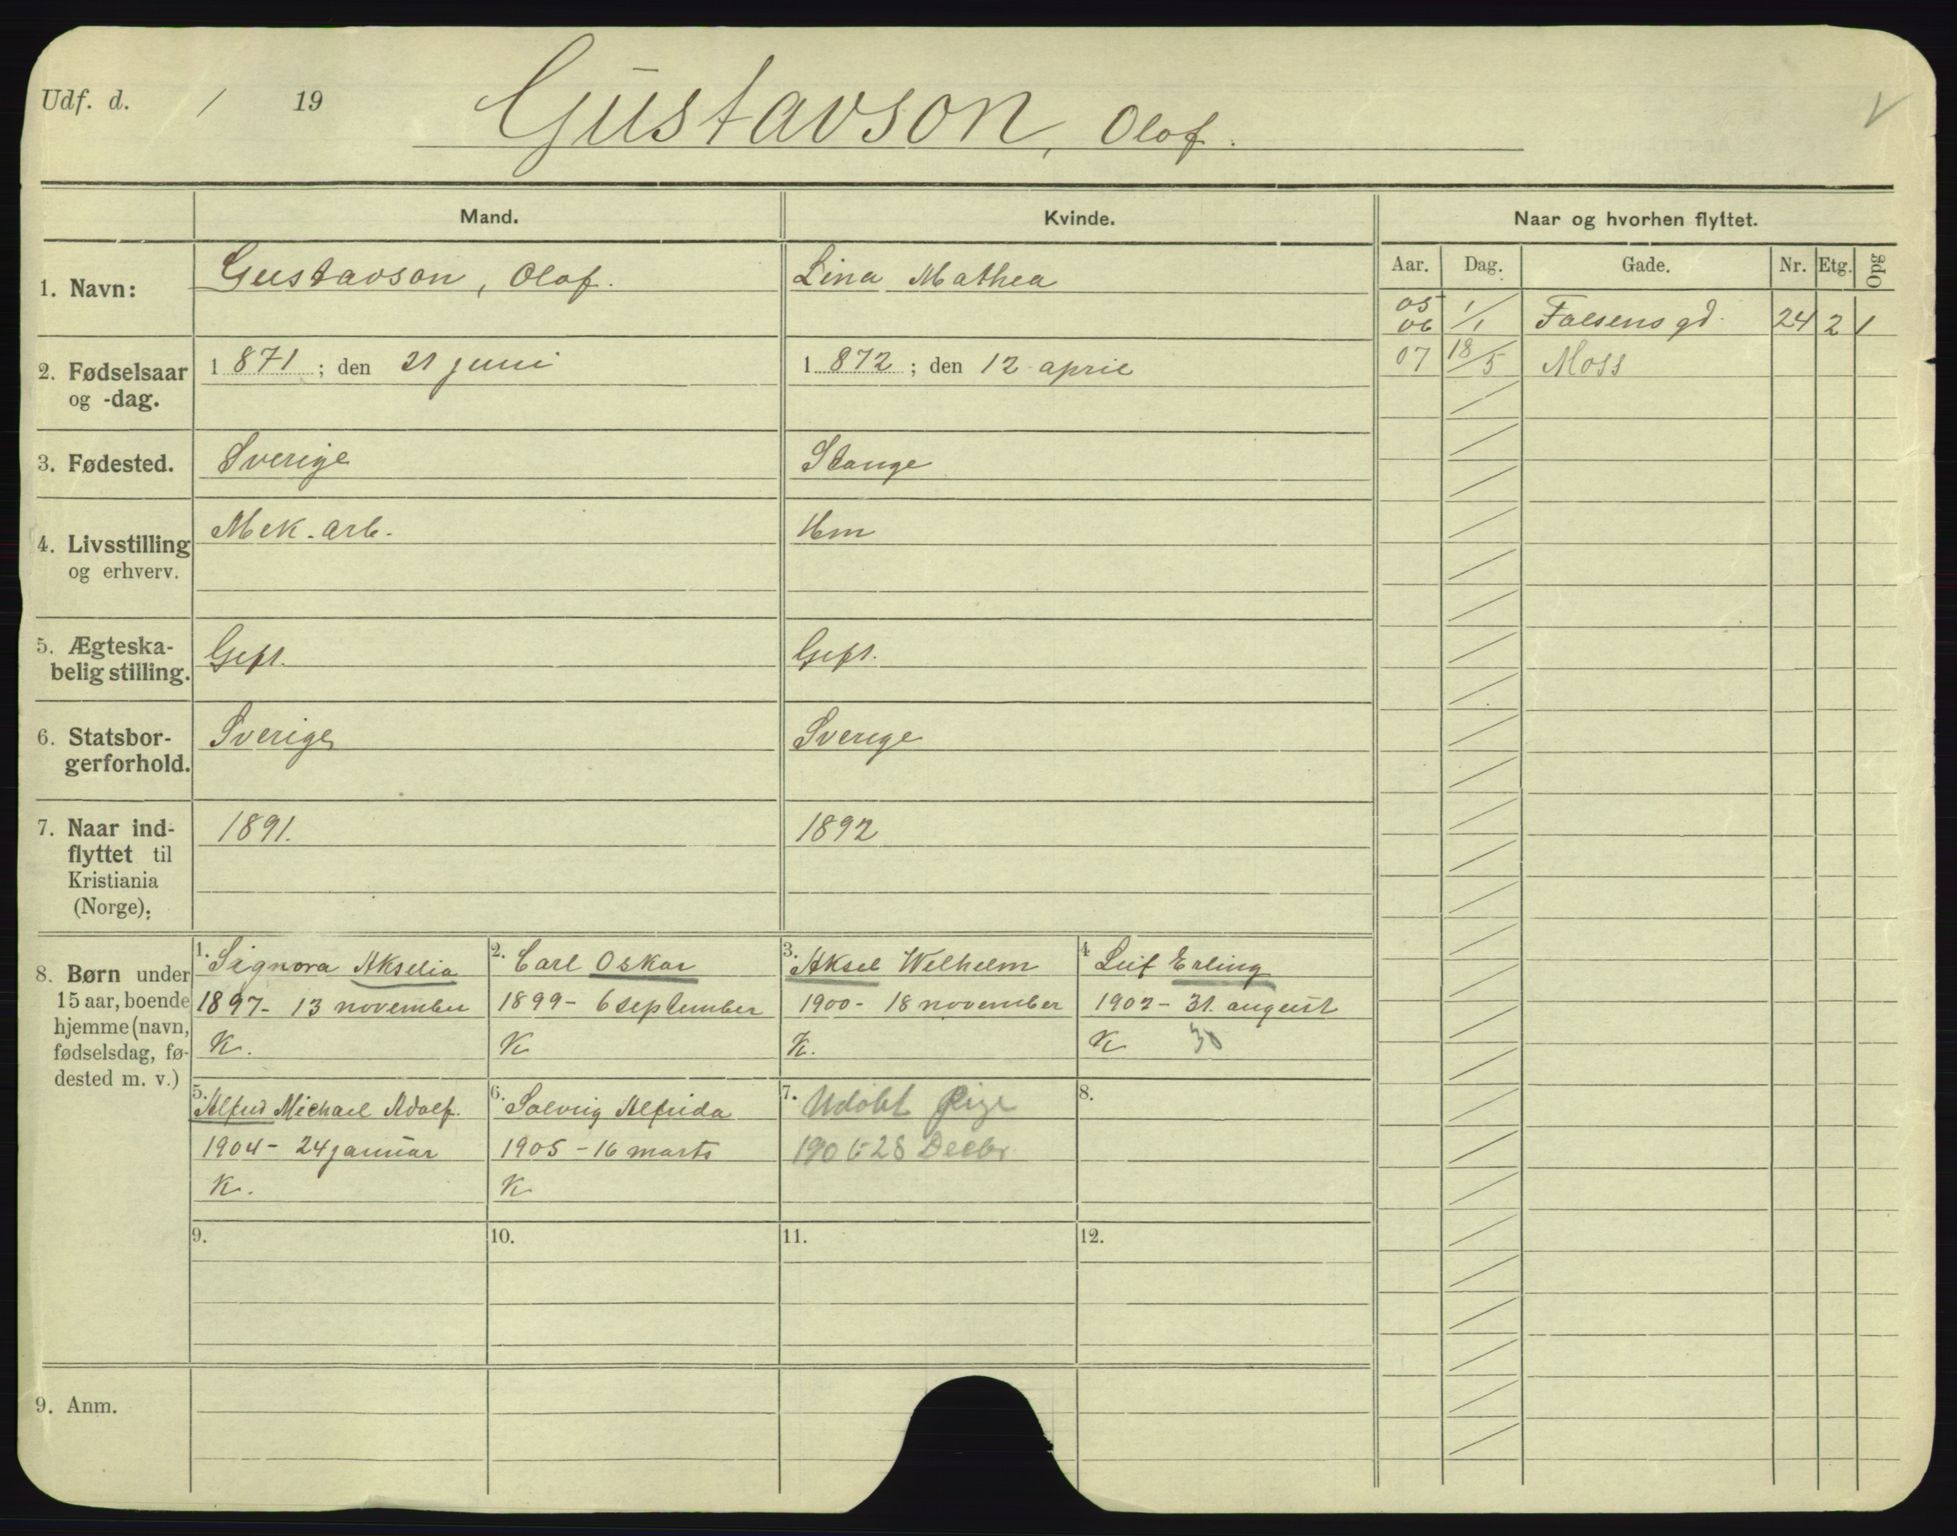 Udf. d. / 19 Gustavson, Olof.
Mand. Kvinde. Naar og hvorhen flyttet.
Aar. Dag. Gade. Nr. Etg. Opg
1. Navn: Gustavson, Olof. Lina Mathea
05
06 1/1 Falsens gd. 24 2 1
07 18/5 Moss
2. Fødselsaar og -dag. 1871; den 21 juni 1872; den 12 april
3. Fødested. Sverige Stange
4. Livsstilling og erhverv. Mek. arb. Hm
5. Ægteska-
belig stilling. Gift. Gift.
6. Statsbor-
gerforhold. Sverige Sverige
7. Naar ind-
flyttet til
Kristiania
(Norge). 1891. 1892
8. Børn under
15 aar, boende
hjemme (navn,
fødselsdag, fø-
dested m. v.)
1. Signora Akselia
1897 - 13 november
K.
2. Carl Oskar
1899 - 6 september
K
3. Aksel Welhelm
1900 - 18 november
K.
4. Leif Erling
1902 - 31. august
K 30
5. Alfred Michael Adolf.
1904 - 24 januar
K.
6. Solveig Alfrida
1905 - 16 marts
K
7. Udøbt Pige
1906 - 28 Decbr
8.
9. 10. 11. 12.
9. Anm.